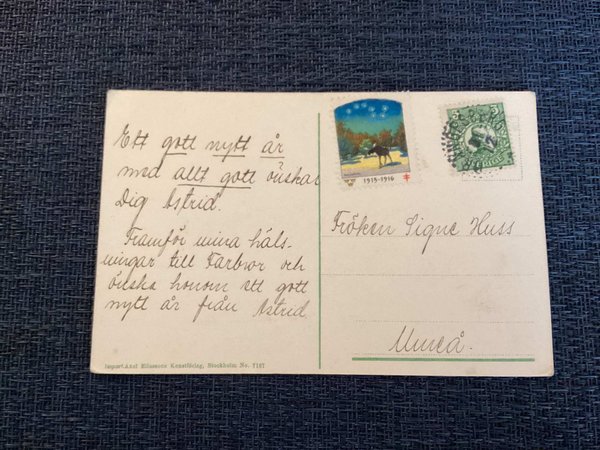 Ett gott nytt år
med allt gott önskar
Dig Astrid.
Framför mina häls-
ningar till Farbror och
önska honom ett gott
nytt år från Astrid.
Import. Axel Eliassons Konstförlag, Stockholm No. 7187
1915-1916
5 5
Fröken Signe Huss
Umeå.